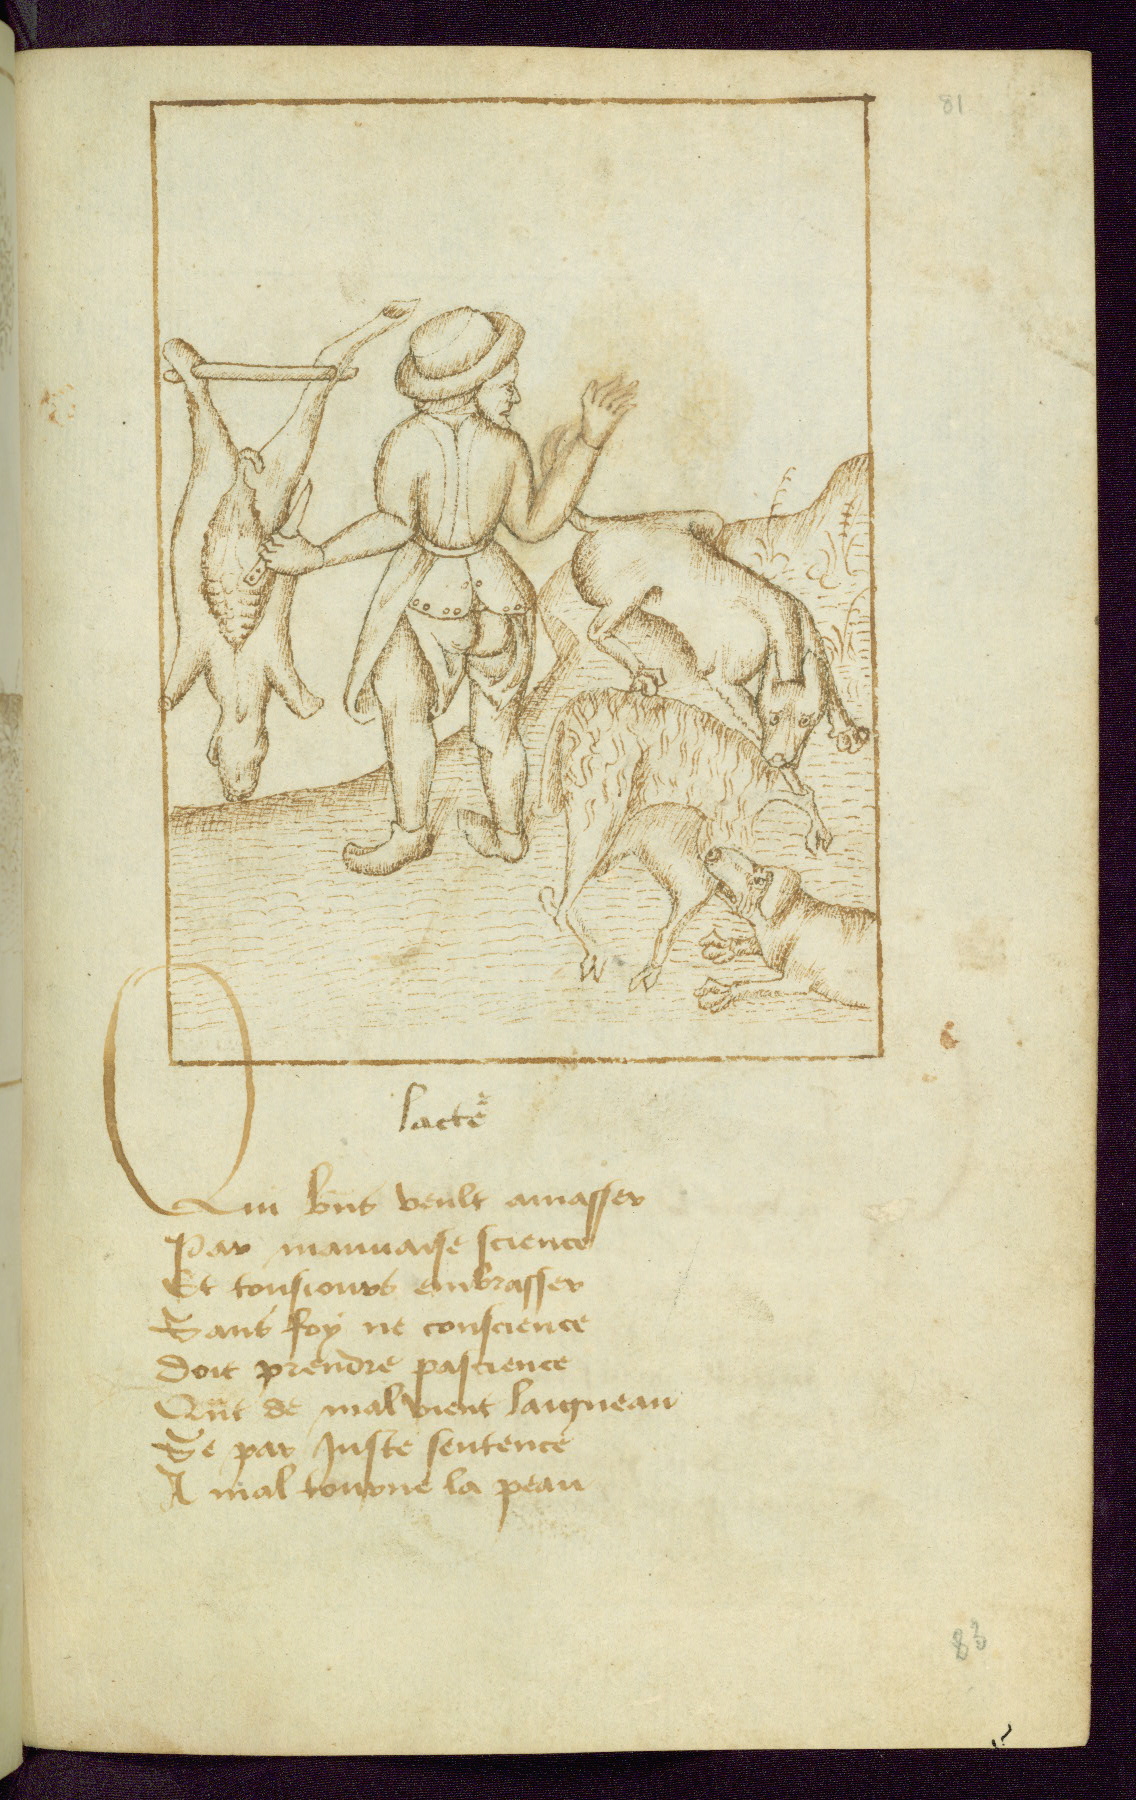 81
lacte͂r
Qui bñs veult amasser
Par mauuaise science
Et tousiours embrasser
Sans foy ne conscience
Doit prendre pascience
Qñt de mal vient laigneau
Se par Juste sentence
A mal tourne la peau
83